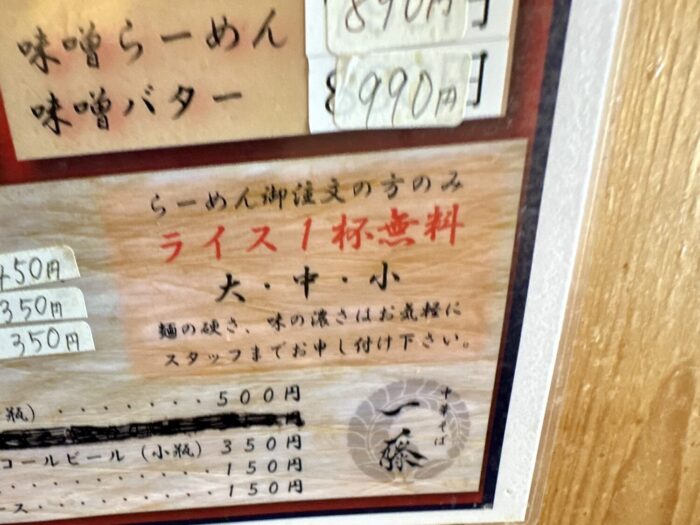 味噌らーめん 890円
味噌バター 990円
らーめん御注文の方のみ
ライス1杯無料
大・中・小
麺の硬さ、味の濃さはお気軽に
スタッフまでお申し付け下さい。
450円
350円
350円
瓶)・・・・・・・500円
コールビール(小瓶)350円
・・・・・・・・・・150円
ース・・・・・・・・150円
中華そば
一藤